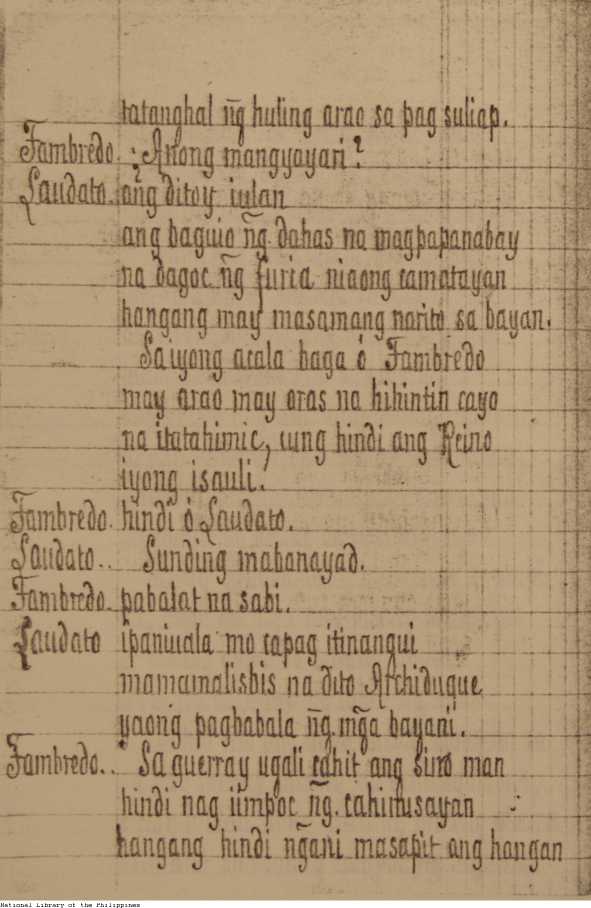 tatanghal n͠g huling arao sa pag suliap.
Fambredo. ¿Anong mangyayari?
Laudato. ang ditoy iulan
ang baguio n͠g. dahas na magpapanabay
na dagoc n͠g furia niaong camatayan
hangang may masamang narito sa bayan.
Sa iyong acala baga ó Fambredo
may arao may oras na hihintin cayo
na itatahimic, cung hindi ang Reino
iyong isauli.
Fambredo. hindi ó Laudato.
Laudato.. Sunding mabanayad.
Fambredo. pabalat na sabi.
Laudato ipaniuala mo capag itinangui
mamamalisbis na dito Archiduque
yaong pagbabala n͠g. m͠ga bayani.
Fambredo.. Sa guerray ugali cahit ang sino man
hindi nag iimpoc n͠g. cahinusayan
hangang hindi n͠gani masapit ang hangan
National Library of the Philippines